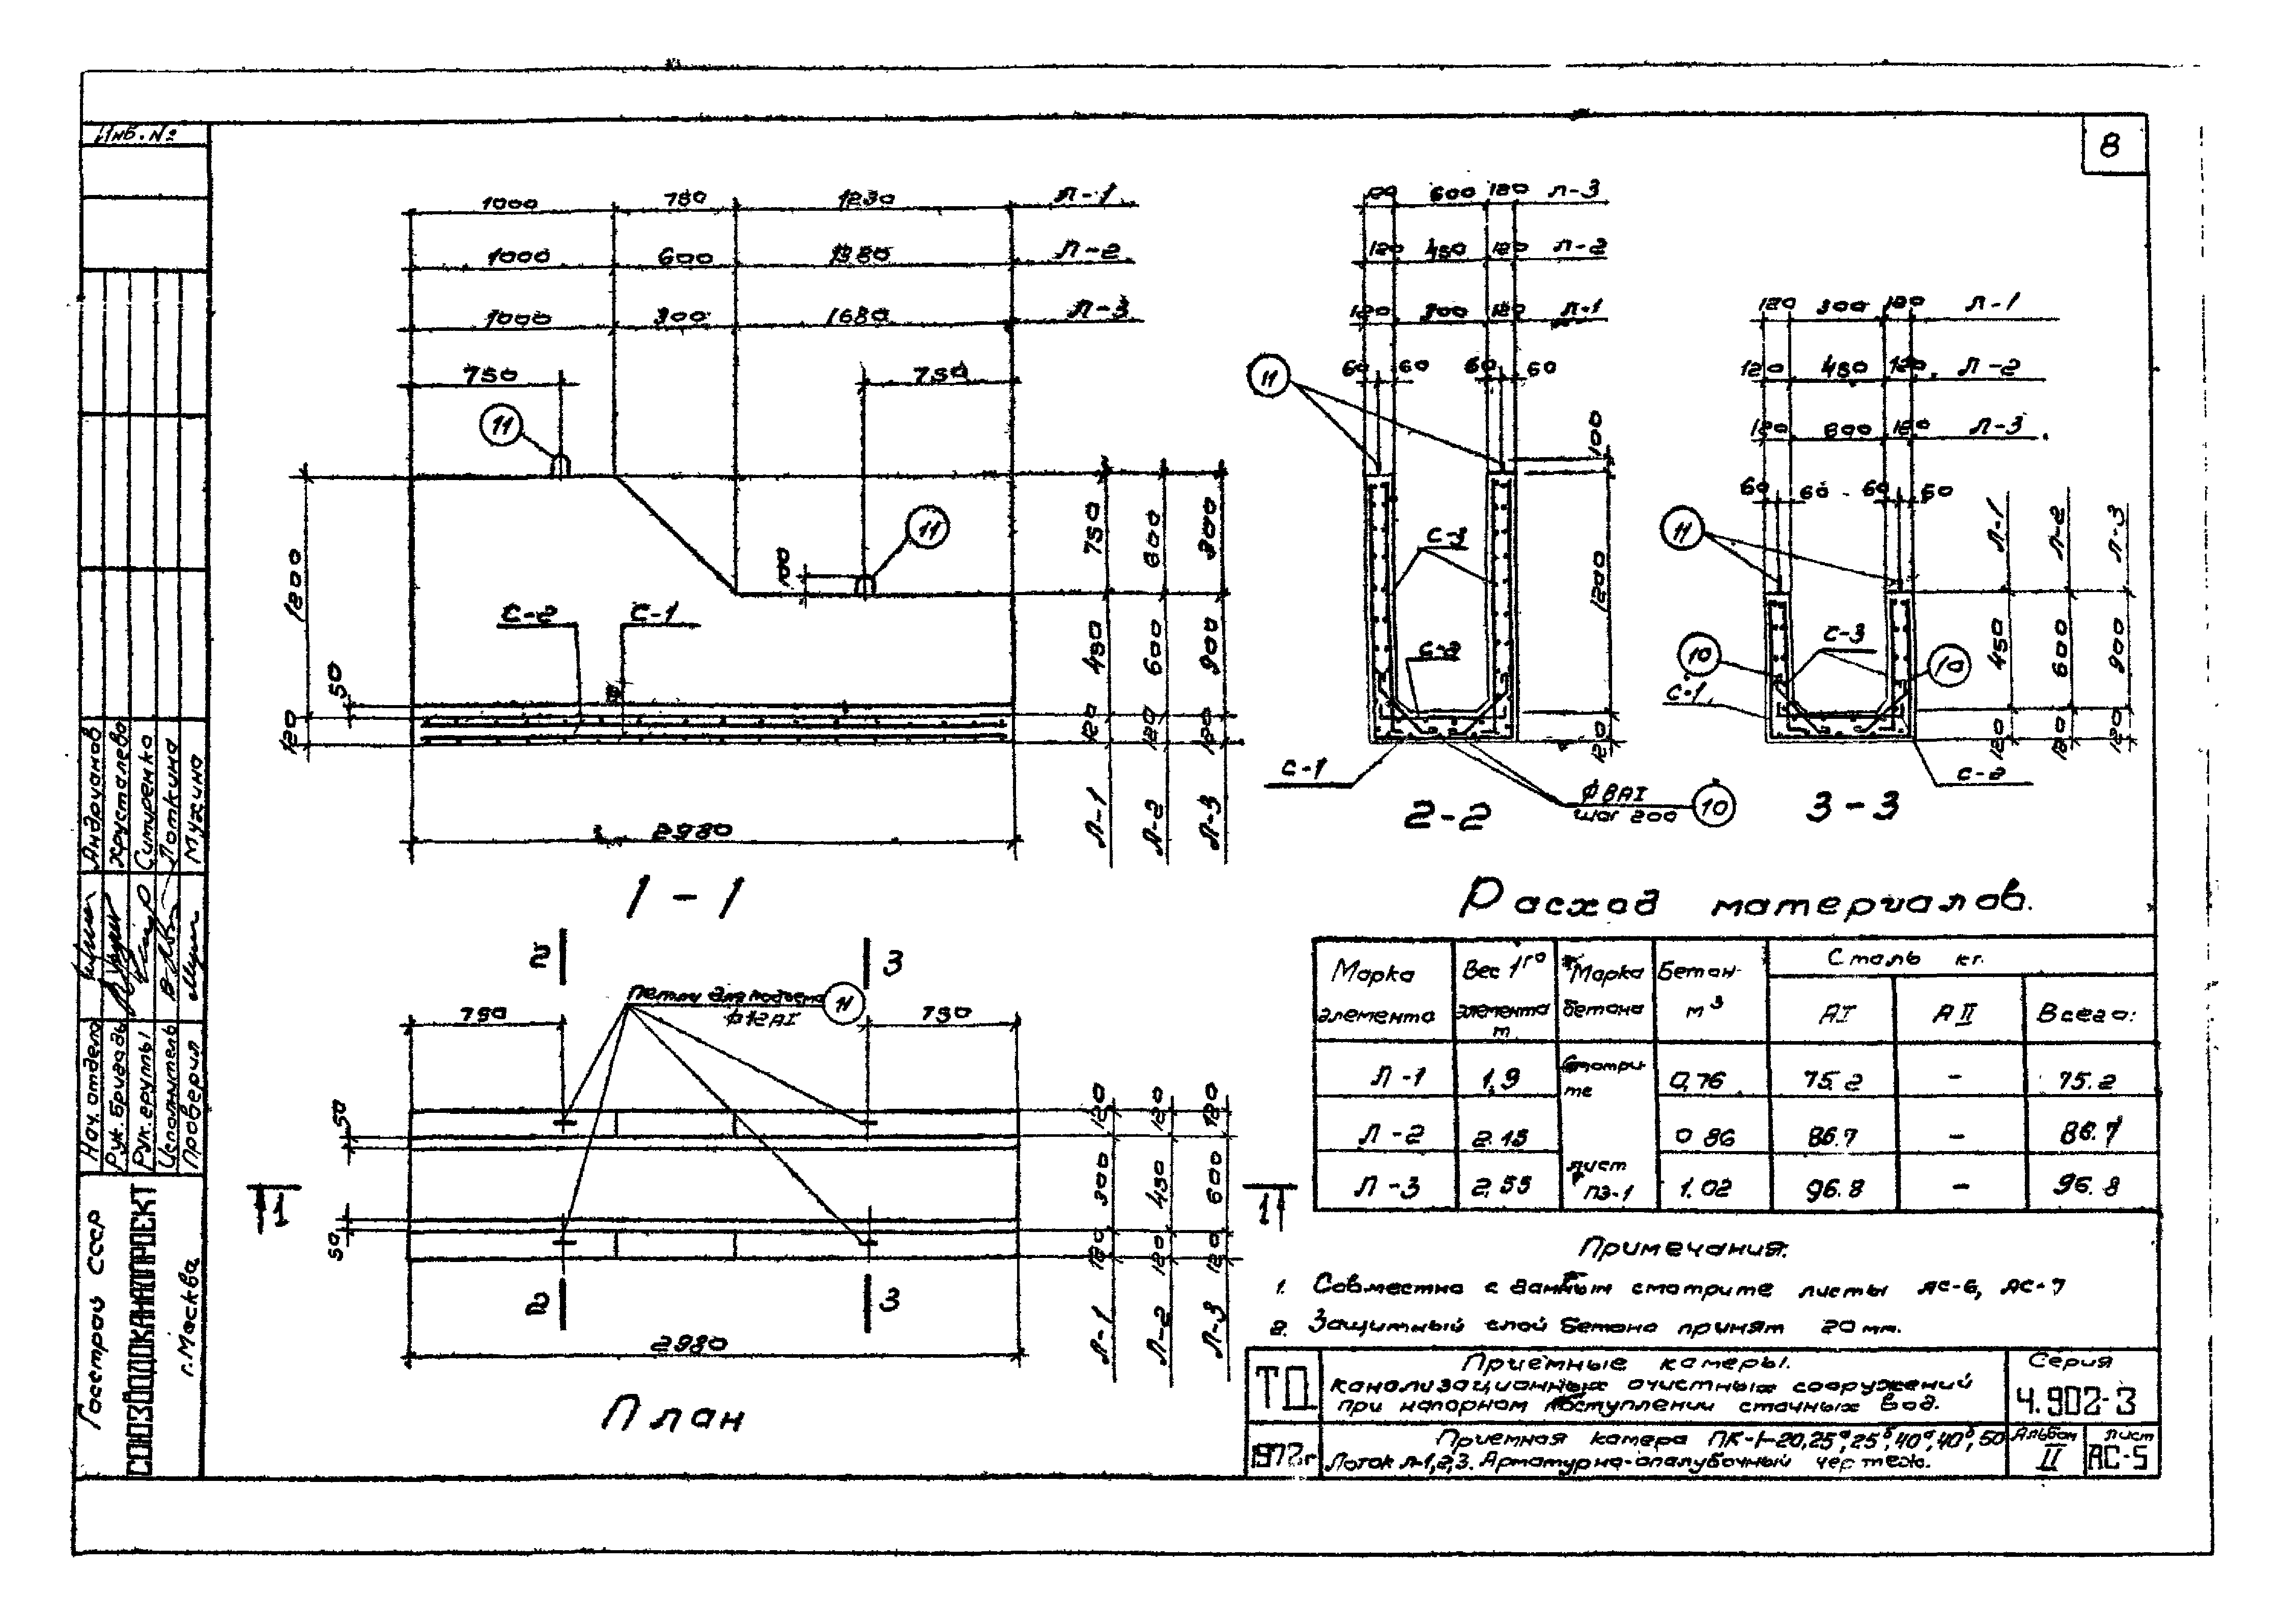 Инв. №
8
1000 780 1230 Л-1
1000 600 1380 Л-2
1000 300 1680 Л-3
750 750
11
11
100
1200
50
120
С-2 С-1
750 600 300
450 600 900
120 120 120
Л-1 Л-2 Л-3
2980
1-1
600 120 Л-3
120 450 120 Л-2
120 300 120 Л-1
60 60 60 60
11
100
1200
120
С-2
С-1
ф8АI
шаг 200
10
2-2
120 300 120 Л-1
120 450 120 Л-2
120 600 120 Л-3
60 60 60 60
11
Л-1 Л-2 Л-3
450 600 900
120 120 120
С-3
10 10
С-1
С-2
3-3
2 3
Петли для подъема
ф12АI
11
750 750
50
50
120 120 120
300 450 600
120 120 120
Л-1 Л-2 Л-3
1 1
2 3
2980
План
Расход материалов.
Марка элемента
Вес 1го элемента т
Марка бетона
Бетон м3
Сталь кг.
АI АII Всего:
Л-1 1,9 Смотрите 0,76 75.2 - 75.2
Л-2 2.15 0 86 86.7 - 86.7
Л-3 2,55 лист ПЗ-1 1.02 96.8 - 96.8
Примечания:
1. Совместно с данным смотрите листы АС-6, АС-7
2. Защитный слой бетона принят 20 мм.
ТД
Приемные камеры.
канализационных очистных сооружений
при напорном поступлении сточных вод.
Серия
4.902-3
1972г
Приемная камера ПК-1-20,25а,25б,40а,40б,50
Лоток Л-1,2,3. Арматурно-опалубочный чертеж.
Альбом
II
лист
АС-5
Нач. отдела Андрианов
Рук. бригады Хрусталева
Рук. группы Ситуренко
Исполнитель Лоткина
Проверил Мухина
Госстрой СССР
СОЮЗВОДОКАНАЛПРОЕКТ
г. Москва